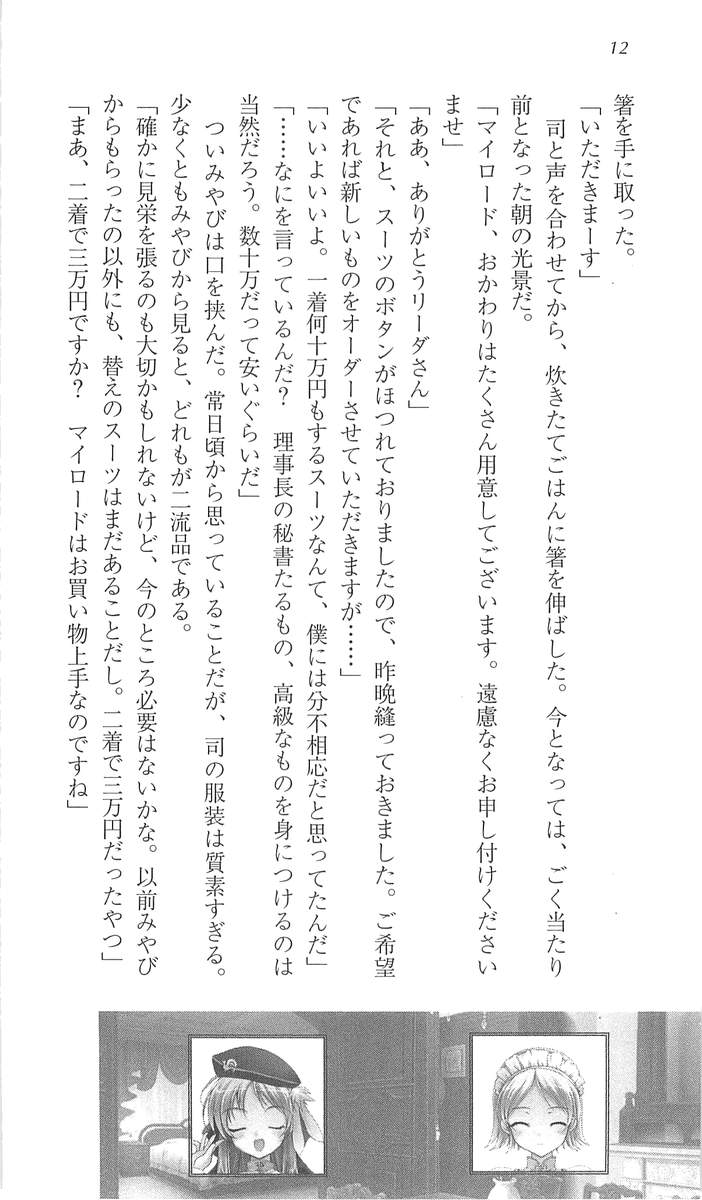 12
箸を手に取った。
「いただきまーす」
司と声を合わせてから、炊きたてごはんに箸を伸ばした。今となっては、ごく当たり
前となった朝の光景だ。
「マイロード、おかわりはたくさん用意してございます。遠慮なくお申し付けください
ませ」
「ああ、ありがとうリーダさん」
「それと、スーツのボタンがほつれておりましたので、昨晩縫っておきました。ご希望
であれば新しいものをオーダーさせていただきますが……」
「いいよいいよ。一着何十万円もするスーツなんて、僕には分不相応だと思ってたんだ」
「……なにを言っているんだ？　理事長の秘書たるもの、高級なものを身につけるのは
当然だろう。数十万だって安いぐらいだ」
ついみやびは口を挟んだ。常日頃から思っていることだが、司の服装は質素すぎる。
少なくともみやびから見ると、どれもが二流品である。
「確かに見栄を張るのも大切かもしれないけど、今のところ必要はないかな。以前みやび
からもらったの以外にも、替えのスーツはまだあることだし。二着で三万円だったやつ」
「まあ、二着で三万円ですか？　マイロードはお買い物上手なのですね」